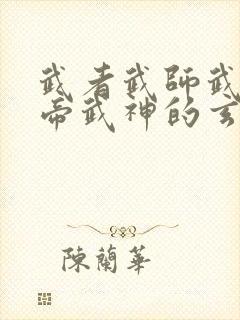 武者武師武
帝武神的玄
陳蘭華